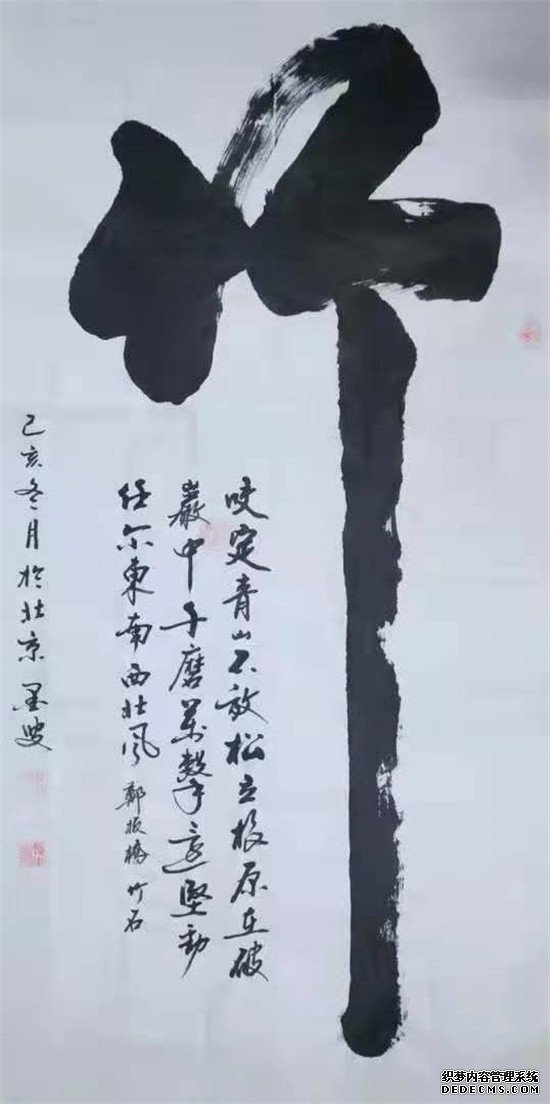 竹
咬定青山不放松立根原在破
巖中千磨萬擊還堅勁
任尔東南西北风 鄭板橋 竹石
己亥冬月於北京 墨叟
织梦内容管理系统
DEDECMS.COM